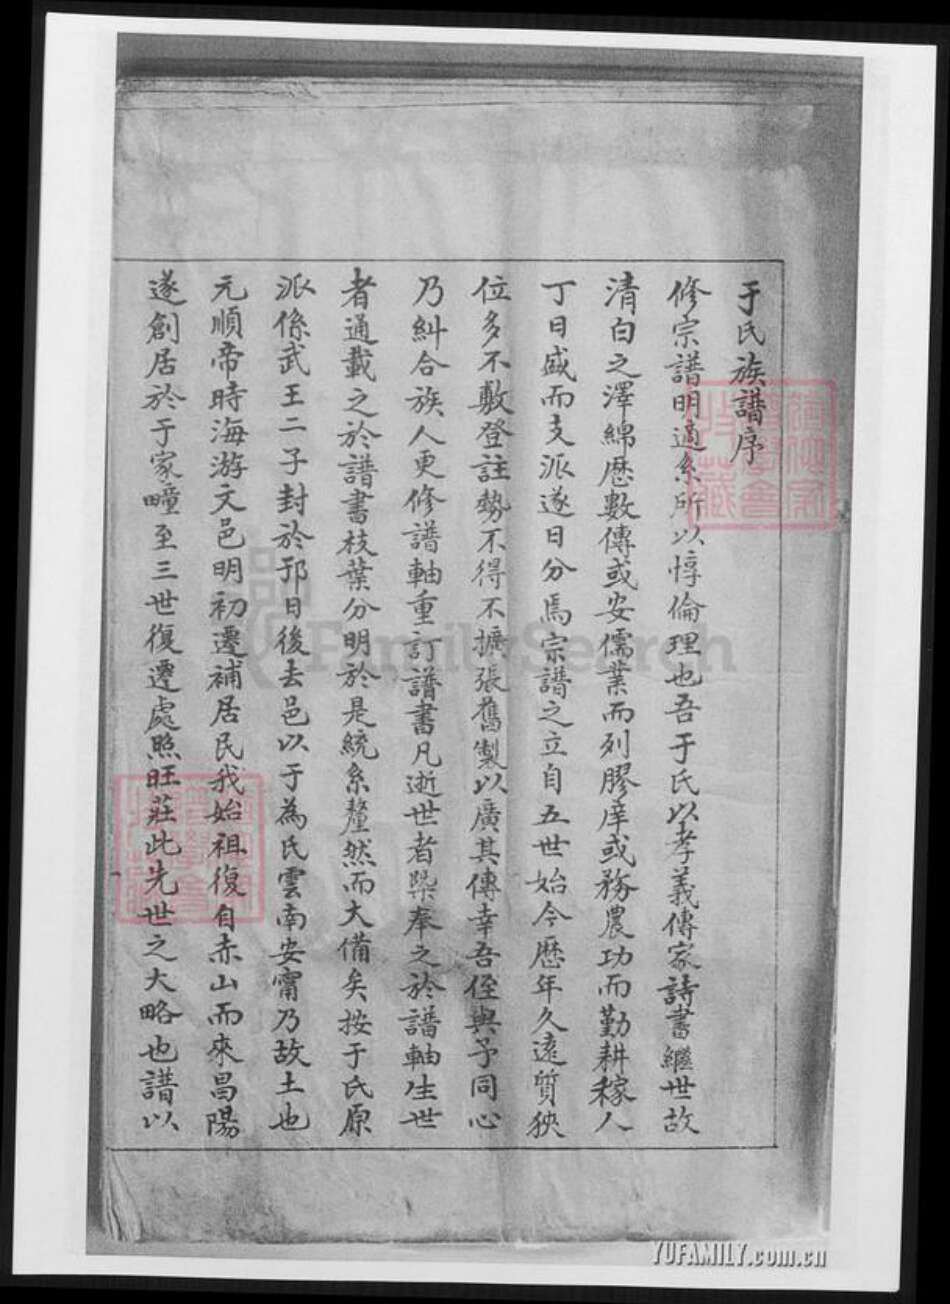 于氏族譜序
修宗譜明適系所以惇倫理也吾于氏以孝義傳家詩書繼世故
清白之澤綿歷數傳或安儒業而列膠庠或務農功而勤耕稼人
丁日盛而支派遂日分焉宗譜之立自五世始今歷年久遠質狹
位多不敷登註勢不得不擴張舊製以廣其傳幸吾侄與予同心
乃糾合族人更修譜軸重訂譜書凡逝世者槩奉之於譜軸生世
者通載之於譜書枝葉分明於是統系釐然而大備矣按于氏原
派係武王二子封於邘日後去邑以于為氏雲南安甯乃故土也
元順帝時海游文邑明初遷補居民我始祖復自赤山而來昌陽
遂創居於于家疃至三世復遷處照旺莊此先世之大略也譜以
FamilySearch
YUFAMILY.com.cn